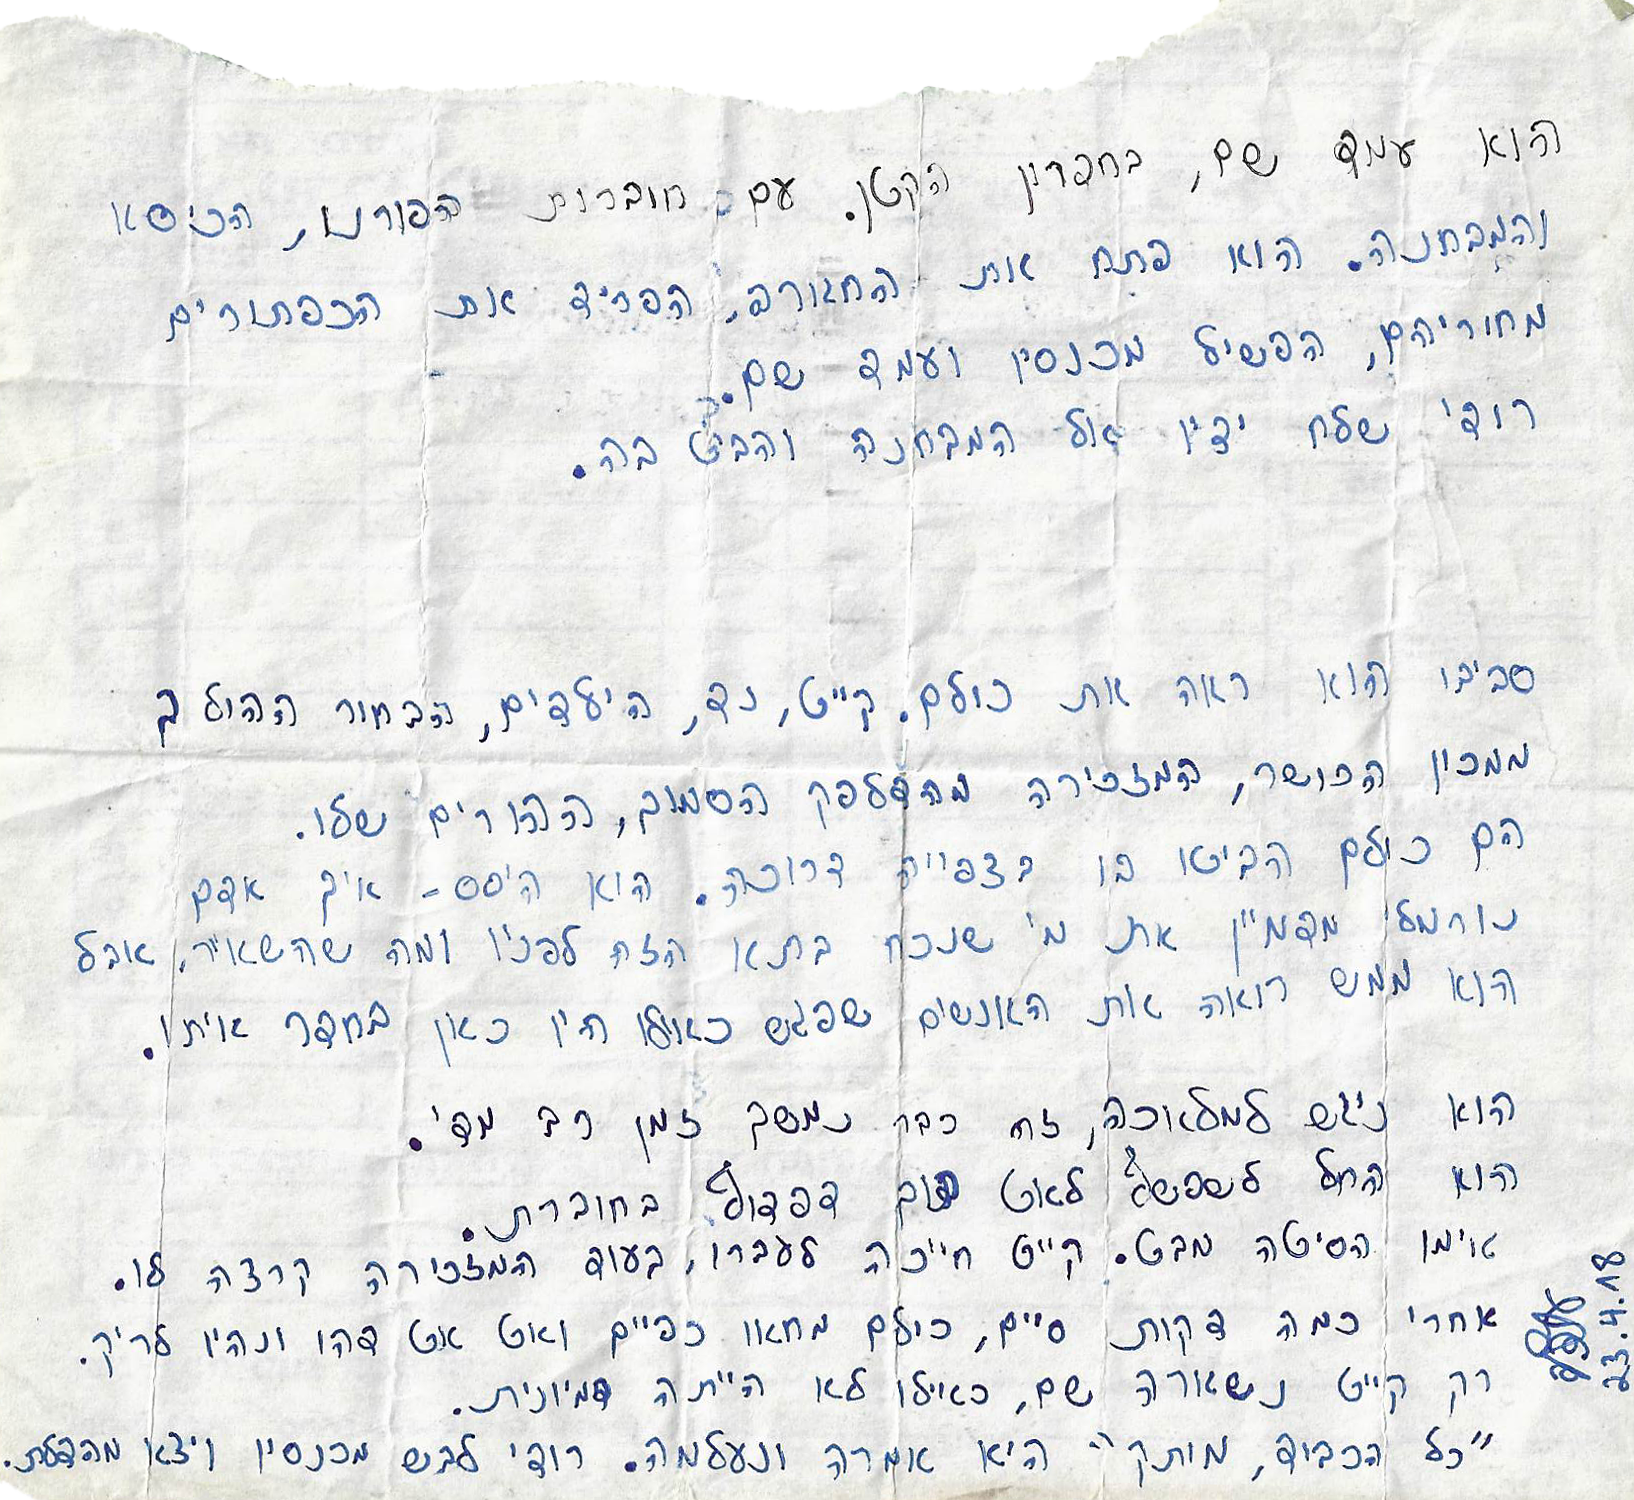 הוא עמד שם, בחדרון הקטן. עם חוברות הפורנו, הכיסא
והמבחנה. הוא פתח את החגורה, הפריד את הכפתורים
מחוריהם, הפשיל מכנסיו ועמד שם.
רודי שלח ידיו אל המבחנה והביט בה.
סביבו הוא ראה את כולם. קייט, נד, הילדים, הבחור ההולך
ממכון הכושר, המזכירה מהדלפק הסמוך, ההורים שלו.
הם כולם הביטו בו בצפייה דרוכה. הוא היסס - איך אדם
נורמלי מדמיין את מי שנכח בתא הזה לפניו ומה שהשאיר, אבל
הוא ממש רואה את האנשים שפגש כאילו היו כאן בחדר איתו.
הוא ניגש למלאכה, זה כבר נמשך זמן רב מדי.
הוא החל לשפשף לאט תוך דפדוף בחוברת.
אימו הסיטה מבט. קייט חייכה לעברו, בעוד המזכירה קרצה לו.
אחרי כמה דקות סיים, כולם מחאו כפיים ואט אט דהו ונהיו לריק.
רק קייט נשארה שם, כאילו לא הייתה דמיונית.
"כל הכבוד, מותק" היא אמרה ונעלמה. רודי לבש מכנסיו ויצא מהדלת.